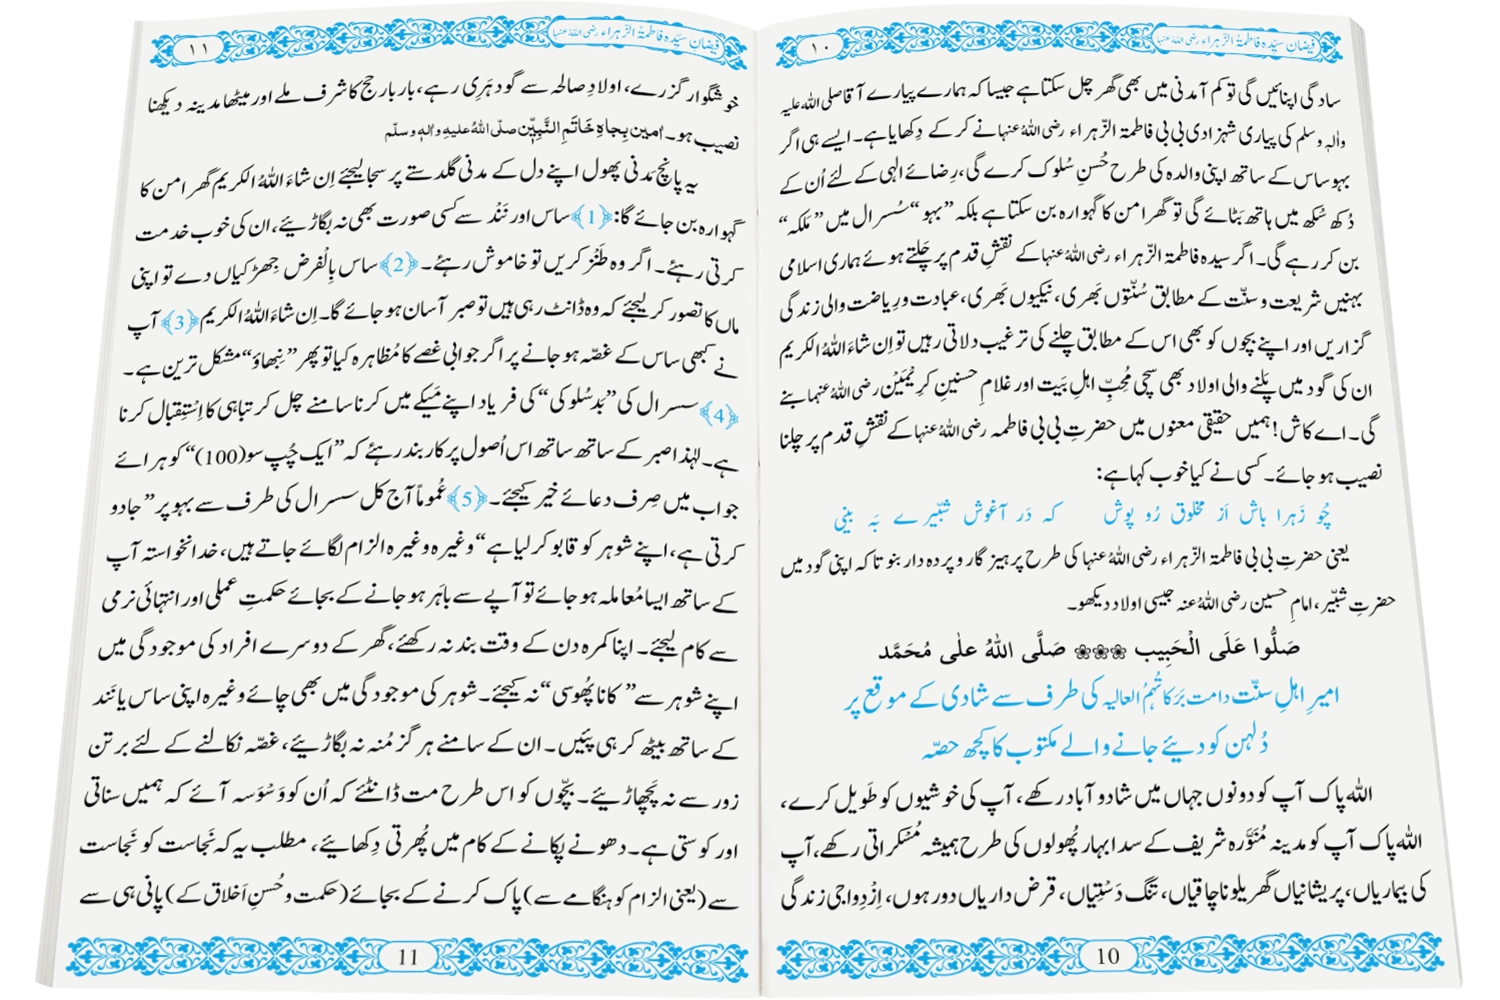 فیضان سیّدہ فاطمۃُ الزّہراء رضی اللہُ عنہا
۱۰
سادگی اپنائیں گی تو کم آمدنی میں بھی گھر چل سکتا ہے جیسا کہ ہمارے پیارے آقا صلی اللہ علیہ
واٰلہٖ وسلم کی پیاری شہزادی بی بی فاطمۃ الزّہراء رضی اللہُ عنہا نے کر کے دِکھایا ہے۔ ایسے ہی اگر
بہو ساس کے ساتھ اپنی والدہ کی طرح حُسنِ سُلوک کرے گی، رِضائے الٰہی کے لئے اُن کے
دُکھ سُکھ میں ہاتھ بَٹائے گی تو گھر امن کا گہوارہ بن سکتا ہے بلکہ ”بہو“ سُسرال میں ”مَلکہ“
بن کر رہے گی۔ اگر سیدہ فاطمۃ الزّہراء رضی اللہُ عنہا کے نقشِ قدم پر چَلتے ہوئے ہماری اسلامی
بہنیں شریعت و سنّت کے مطابق سُنّتوں بَھری، نیکیوں بَھری، عبادت و رِیاضت والی زندگی
گزاریں اور اپنے بچوں کو بھی اس کے مطابق چلنے کی ترغیب دلاتی رہیں تو اِن شاءَ اللہُ الکریم
ان کی گود میں پَلنے والی اولاد بھی سچی مُحِبِّ اہلِ بَیت اور غلامِ حسنینِ کریمَیْن رضی اللہُ عنہما بنے
گی۔ اے کاش! ہمیں حقیقی معنوں میں حضرتِ بی بی فاطمہ رضی اللہُ عنہا کے نقشِ قدم پر چلنا
نصیب ہو جائے۔ کسی نے کیا خوب کہا ہے:
چُو زَہرا باش اَز مخلوق رُو پوش کہ دَر آغوش شبّیرے بَہ بینی
یعنی حضرتِ بی بی فاطمۃ الزّہراء رضی اللہُ عنہا کی طرح پرہیز گار و پردہ دار بنو تاکہ اپنی گود میں
حضرتِ شبّیر، امامِ حسین رضی اللہُ عنہ جیسی اولاد دیکھو۔
صَلُّوا عَلَی الْحَبِیب ❀❀❀ صَلَّی اللهُ علٰی مُحَمَّد
امیرِ اہلِ سنّت دامت بَرَکاتُہُمُ العالیہ کی طرف سے شادی کے موقع پر
دُلہن کو دیئے جانے والے مکتوب کا کچھ حصّہ
اللہ پاک آپ کو دونوں جہاں میں شاد و آباد رکھے، آپ کی خوشیوں کو طَویل کرے،
اللہ پاک آپ کو مدینہ مُنَوَّرہ شریف کے سدا بہار پُھولوں کی طرح ہمیشہ مُسکراتی رکھے، آپ
کی بیماریاں، پریشانیاں گھریلو ناچاقیاں، تَنگ دَسْتِیاں، قرض داریاں دور ہوں، اِزْدِواجی زندگی
10
فیضان سیّدہ فاطمۃُ الزّہراء رضی اللہُ عنہا
۱۱
خوشگوار گزرے، اولادِ صالحہ سے گود ہَری رہے، بار بار حج کا شرف ملے اور میٹھا مدینہ دیکھنا
نصیب ہو۔ اٰمین بِجاہِ خَاتَمِ النَّبِیّٖن صلّی اللہُ علیہِ واٰلہٖ وسلّم
یہ پانچ مَدنی پھول اپنے دل کے مدنی گلدستے پر سجا لیجئے اِن شاءَ اللہُ الکریم گھر امن کا
گہوارہ بن جائے گا: ﴿1﴾ ساس اور نَنْد سے کسی صورت بھی نہ بگاڑیئے، ان کی خوب خدمت
کرتی رہئے۔ اگر وہ طَنْز کریں تو خاموش رہئے۔ ﴿2﴾ ساس بِالْفرض جِھڑکیاں دے تو اپنی
ماں کا تصور کر لیجئے کہ وہ ڈانٹ رہی ہیں تو صبر آسان ہو جائے گا۔ اِن شاءَ اللہُ الکریم ﴿3﴾ آپ
نے کبھی ساس کے غصّہ ہو جانے پر اگر جوابی غصے کا مُظاہرہ کیا تو پھر ”نِبھاؤ“ مشکل ترین ہے۔
﴿4﴾ سسرال کی ”بَدسُلوکی“ کی فریاد اپنے مَیکے میں کرنا سامنے چل کر تباہی کا اِسْتِقبال کرنا
ہے۔ لہٰذا صبر کے ساتھ ساتھ اس اُصول پر کار بند رہئے کہ ”ایک چُپ سو (100)“ کو ہرائے
جواب میں صِرف دعائے خیر کیجئے۔ ﴿5﴾ عُموماً آج کل سسرال کی طرف سے بہو پر ”جادو
کرتی ہے، اپنے شوہر کو قابو کر لیا ہے“ وغیرہ وغیرہ الزام لگائے جاتے ہیں، خدانخواستہ آپ
کے ساتھ ایسا مُعاملہ ہو جائے تو آپے سے باہَر ہو جانے کے بجائے حکمتِ عملی اور انتہائی نرمی
سے کام لیجئے۔ اپنا کمرہ دن کے وقت بند نہ رکھئے، گھر کے دوسرے افراد کی موجودگی میں
اپنے شوہر سے ”کانا پُھوسی“ نہ کیجئے۔ شوہر کی موجودگی میں بھی چائے وغیرہ اپنی ساس یا نَند
کے ساتھ بیٹھ کر ہی پئیں۔ ان کے سامنے ہرگز مُنہ نہ بگاڑیئے، غصّہ نکالنے کے لئے برتن
زور سے نہ پَچھاڑیئے۔ بچّوں کو اس طرح مت ڈانٹئے کہ اُن کو وَسْوَسہ آئے کہ ہمیں سناتی
اور کوستی ہے۔ دھونے پکانے کے کام میں پُھرتی دِکھایئے، مطلب یہ کہ نَجاست کو نَجاست
سے (یعنی الزام کو ہنگامے سے) پاک کرنے کے بجائے (حکمت و حُسنِ اَخلاق کے) پانی ہی سے
11